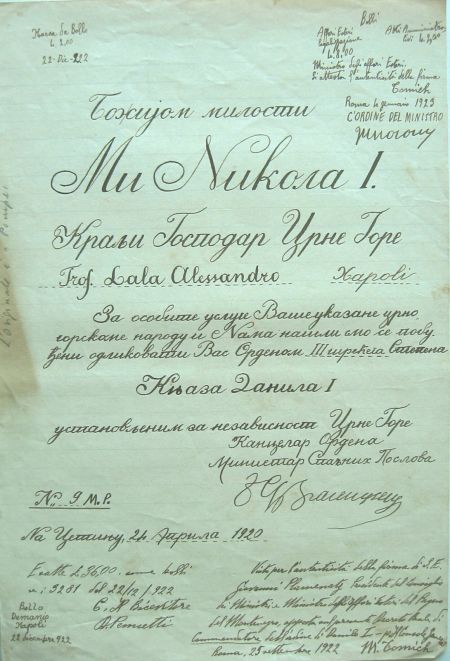 Marca da Bollo
L. 2.00
22-Dic-922
Bolli
Affari Esteri
Legalizzazione
L. 8.00
Atti Amministra
tivi L. 2,00
Ministro degli affari Esteri.
Si attesta l'autenticità della firma
Tomich
Roma 4 gennaio 1923
L'ORDINE DEL MINISTRO
Божијом милости
Ми Никола I.
Краљ и Господар Црне Горе
Prof. Lala Alessandro Napoli
За особите услуге Ваше указане црно
горскоме народу и Нама нашли смо се побу
ђени одликовати Вас Орденом III Степена
Књаза Данила I
установљеним за независност Црне Горе
Канцелар Ордена
Министар Спољних Послова
№ 9 M.P.
На Цетињу, 24 Априла 1920
Esatte L. 36,00
n: 3281 del 22/12/922
Bollo
Demanio
Napoli
22 dicembre 922
Visto per l'autenticità della firma di S.E.
Giovanni Plamenatz, Presidente del Consiglio
dei Ministri e Ministro degli Affari Esteri del Regno
del Montenegro
Commendatore dell'ordine di Danilo I
Roma, 25 settembre 1922 M. Tomich